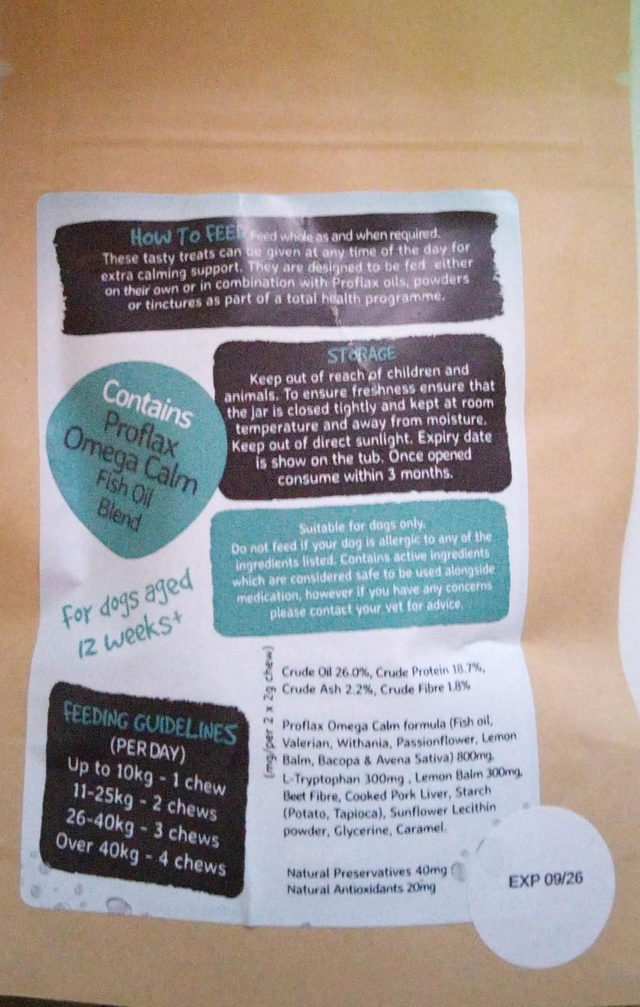 HOW TO FEED Feed whole as and when required.
These tasty treats can be given at any time of the day for
extra calming support. They are designed to be fed either
on their own or in combination with Proflax oils, powders
or tinctures as part of a total health programme.
STORAGE
Keep out of reach of children and
animals. To ensure freshness ensure that
the jar is closed tightly and kept at room
temperature and away from moisture.
Keep out of direct sunlight. Expiry date
is show on the tub. Once opened
consume within 3 months.
Contains
Proflax
Omega Calm
Fish Oil
Blend
Suitable for dogs only.
Do not feed if your dog is allergic to any of the
ingredients listed. Contains active ingredients
which are considered safe to be used alongside
medication, however if you have any concerns
please contact your vet for advice.
For dogs aged
12 weeks+
FEEDING GUIDELINES
(PER DAY)
Up to 10kg - 1 chew
11-25kg - 2 chews
26-40kg - 3 chews
Over 40kg - 4 chews
(mg/per 2 x 2g chew)
Crude Oil 26.0%, Crude Protein 18.7%,
Crude Ash 2.2%, Crude Fibre 1.8%
Proflax Omega Calm formula (Fish oil,
Valerian, Withania, Passionflower, Lemon
Balm, Bacopa & Avena Sativa) 800mg,
L-Tryptophan 300mg , Lemon Balm 300mg,
Beet Fibre, Cooked Pork Liver, Starch
(Potato, Tapioca), Sunflower Lecithin
powder, Glycerine, Caramel.
Natural Preservatives 40mg
Natural Antioxidants 20mg
EXP 09/26